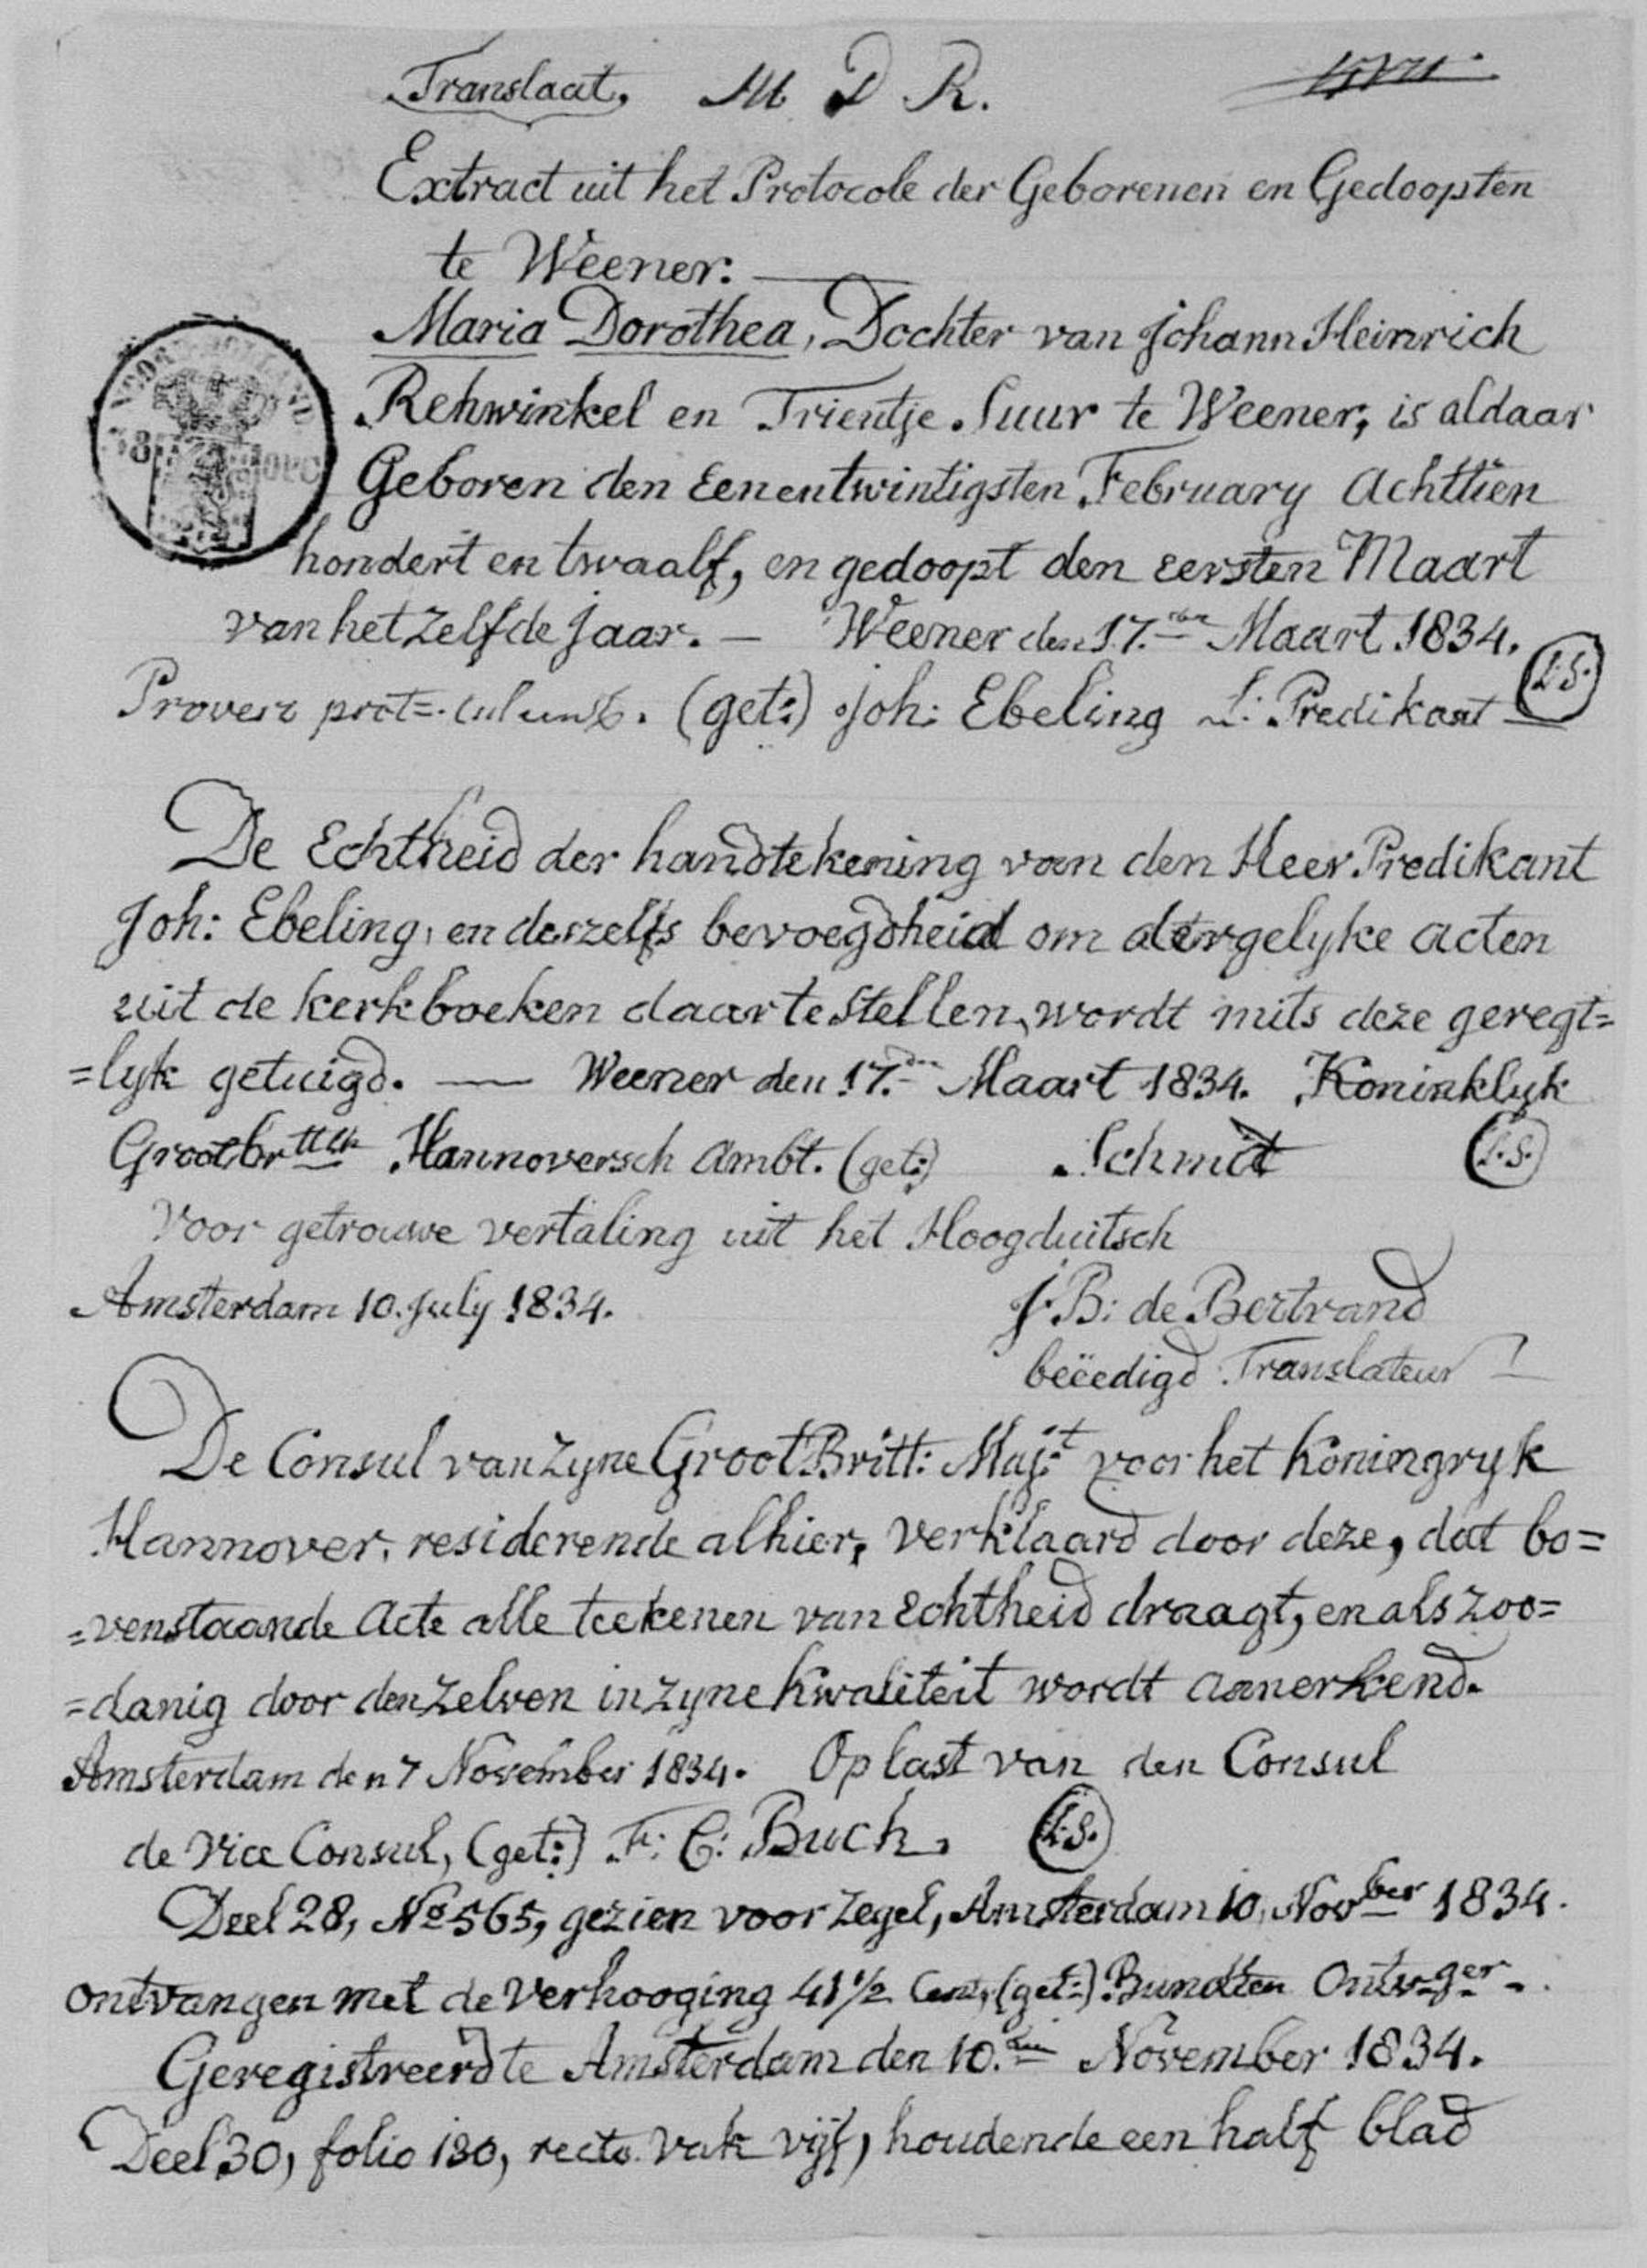 Translaat, M D R.
Extract uit het Protocole der Geborenen en Gedoopten
te Weener: —
Maria Dorothea, Dochter van Johann Heinrich
Rehwinkel en Trientje Suur te Weener, is aldaar
Geboren den Eenentwintigsten February Achttien
hondert en twaalf, en gedoopt den eersten Maart
van het zelfde jaar. — Weener den 17.den Maart 1834.
(get:) Joh: Ebeling L: Predikant L.S.
De Echtheid der handtekening van den Heer Predikant
Joh: Ebeling, en deszelfs bevoegdheid om dergelyke acten
uit de kerkboeken daar te stellen, wordt mits deze geregt=
=lyk getuigd. — Weener den 17.den Maart 1834. Koninklyk
Grootbrttch Hannoversch Ambt. (get:) Schmidt L.S.
Voor getrouwe vertaling uit het Hoogduitsch
Amsterdam 10. July 1834. J. B: de Bertrand
beëedigd Translateur
De Consul van Zyne Groot Britt: Majt voor het Koningryk
Hannover, residerende alhier, verklaard door deze, dat bo=
=venstaande Acte alle teekenen van Echtheid draagt, en als zoo=
=danig door denzelven in zyne kwaliteit wordt aanerkend.
Amsterdam den 7 November 1834. Op last van den Consul
de Vice Consul, (get:) F: C: Buch, L.S.
Deel 28, No 565, gezien voor zegel, Amsterdam 10, Novber 1834.
ontvangen met de Verhooging 41 1/2 Cent, (get:) Ontvger.
Geregistreerd te Amsterdam den 10.den November 1834.
Deel 30, folio 130, recto vak vijf, houdende een half blad